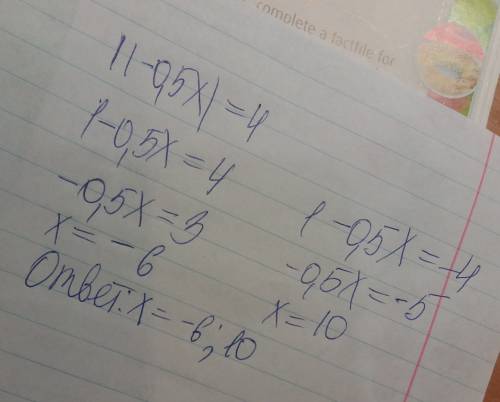 complete a factfile for
|1-0,5x|=4
1-0,5x=4
-0,5x=3
x=-6
1-0,5x=-4
-0,5x=-5
x=10
Ответ: x=-6; 10